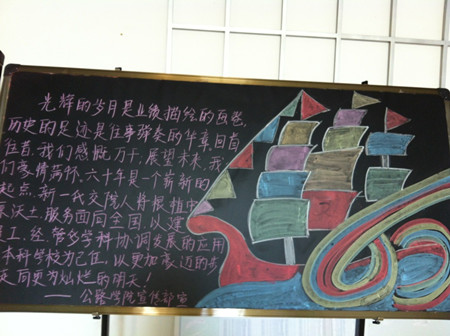 光辉的岁月是业绩描绘的画卷,
历史的足迹是往事弹奏的华章回首
往昔,我们感慨万千,展望未来,我
们豪情满怀,六十年是一个崭新的
起点,新一代交院人将根植中
原沃土,服务面向全国,以建
工、经、管多学科协调发展的应用
本科学校为己任,以更加豪迈的步
更为灿烂的明天!
——公路学院宣传部宣